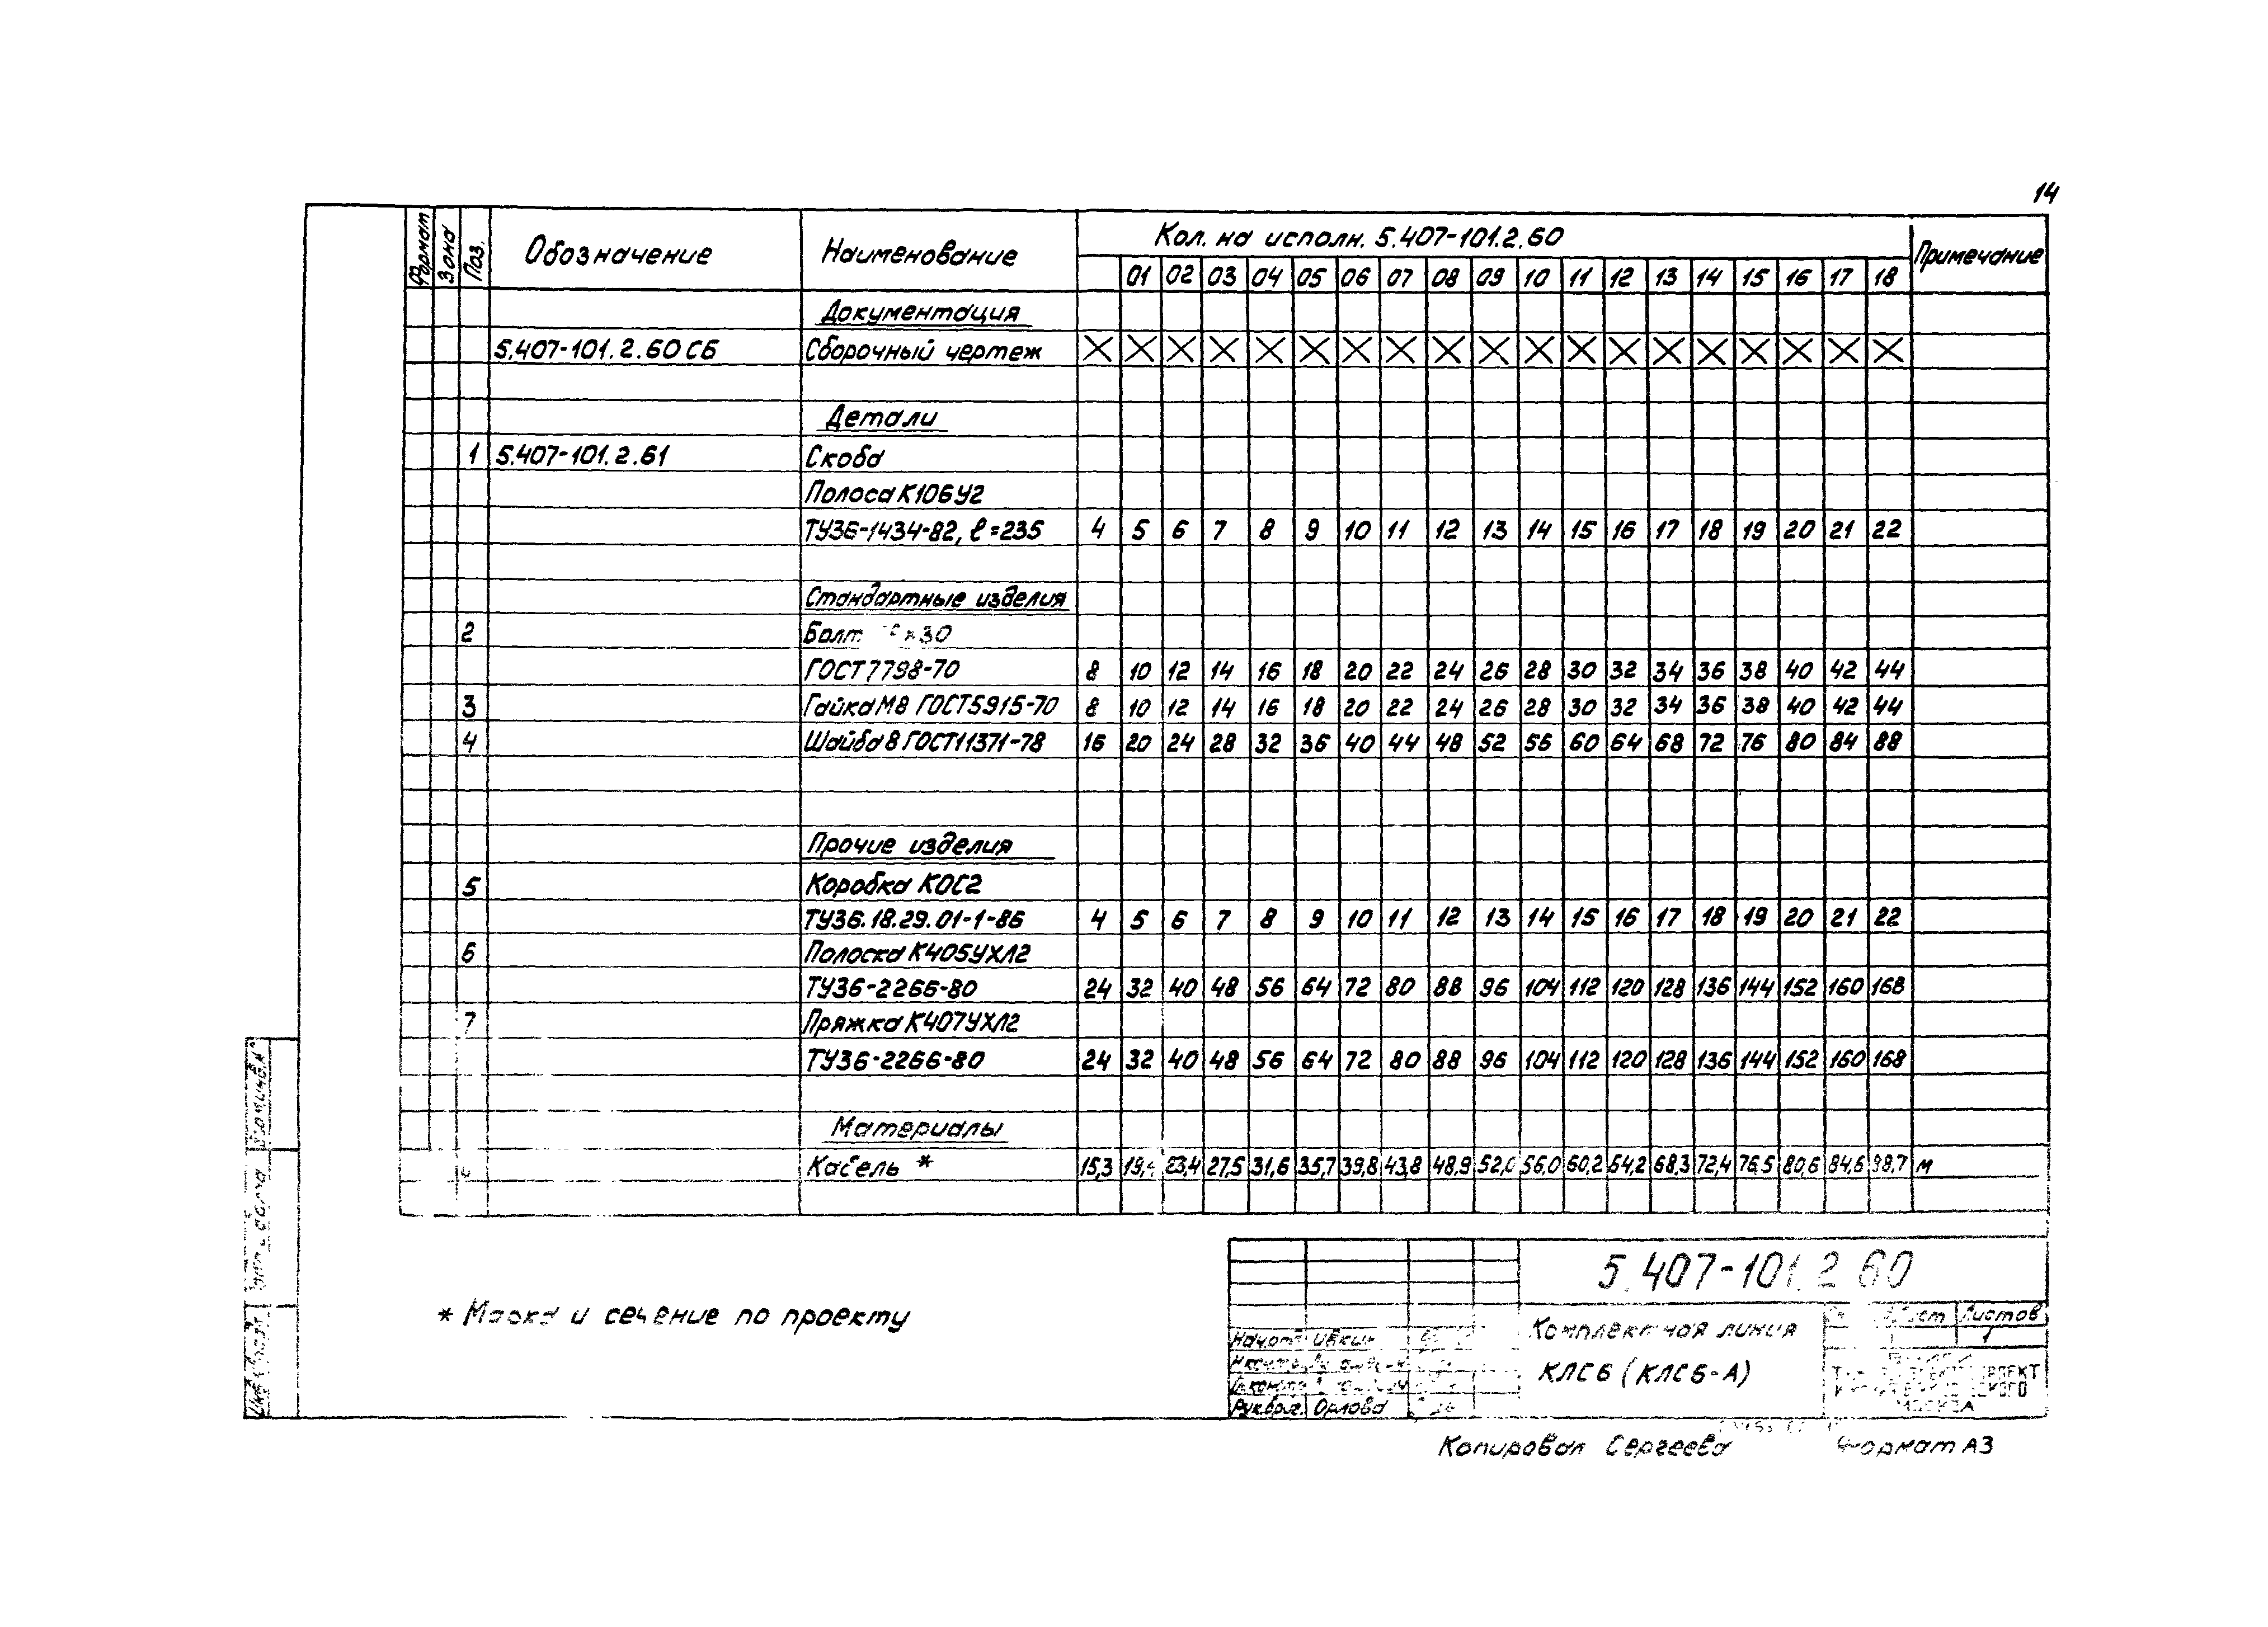 14
Формат Зона Поз. Обозначение Наименование Кол. на исполн. 5.407-101.2.60 Примечание
01 02 03 04 05 06 07 08 09 10 11 12 13 14 15 16 17 18
Документация
5.407-101.2.60 СБ Сборочный чертеж
Детали
1 5.407-101.2.61 Скоба
Полоса К106У2
ТУ36-1434-82, ℓ=235 4 5 6 7 8 9 10 11 12 13 14 15 16 17 18 19 20 21 22
Стандартные изделия
2 Болт ×30
ГОСТ7798-70 8 10 12 14 16 18 20 22 24 26 28 30 32 34 36 38 40 42 44
3 Гайка М8 ГОСТ5915-70 8 10 12 14 16 18 20 22 24 26 28 30 32 34 36 38 40 42 44
4 Шайба 8 ГОСТ11371-78 16 20 24 28 32 36 40 44 48 52 56 60 64 68 72 76 80 84 88
Прочие изделия
5 Коробка КОС2
ТУ36.18.29.01-1-86 4 5 6 7 8 9 10 11 12 13 14 15 16 17 18 19 20 21 22
6 Полоска К405УХЛ2
ТУ36-2266-80 24 32 40 48 56 64 72 80 88 96 104 112 120 128 136 144 152 160 168
7 Пряжка К407УХЛ2
ТУ36-2266-80 24 32 40 48 56 64 72 80 88 96 104 112 120 128 136 144 152 160 168
Материалы
Кабель * 15,3 23,4 27,5 31,6 35,7 39,8 43,8 48,9 52,0 56,0 60,2 64,2 68,3 72,4 76,5 80,6 84,6 м
* Марка и сечение по проекту
5.407-101.2.60
Комплектная линия
КЛС6 (КЛС6-А)
Лист Листов
1
Рук.бриг. Орлова
МОСКВА
Копировал Сергеева Формат А3